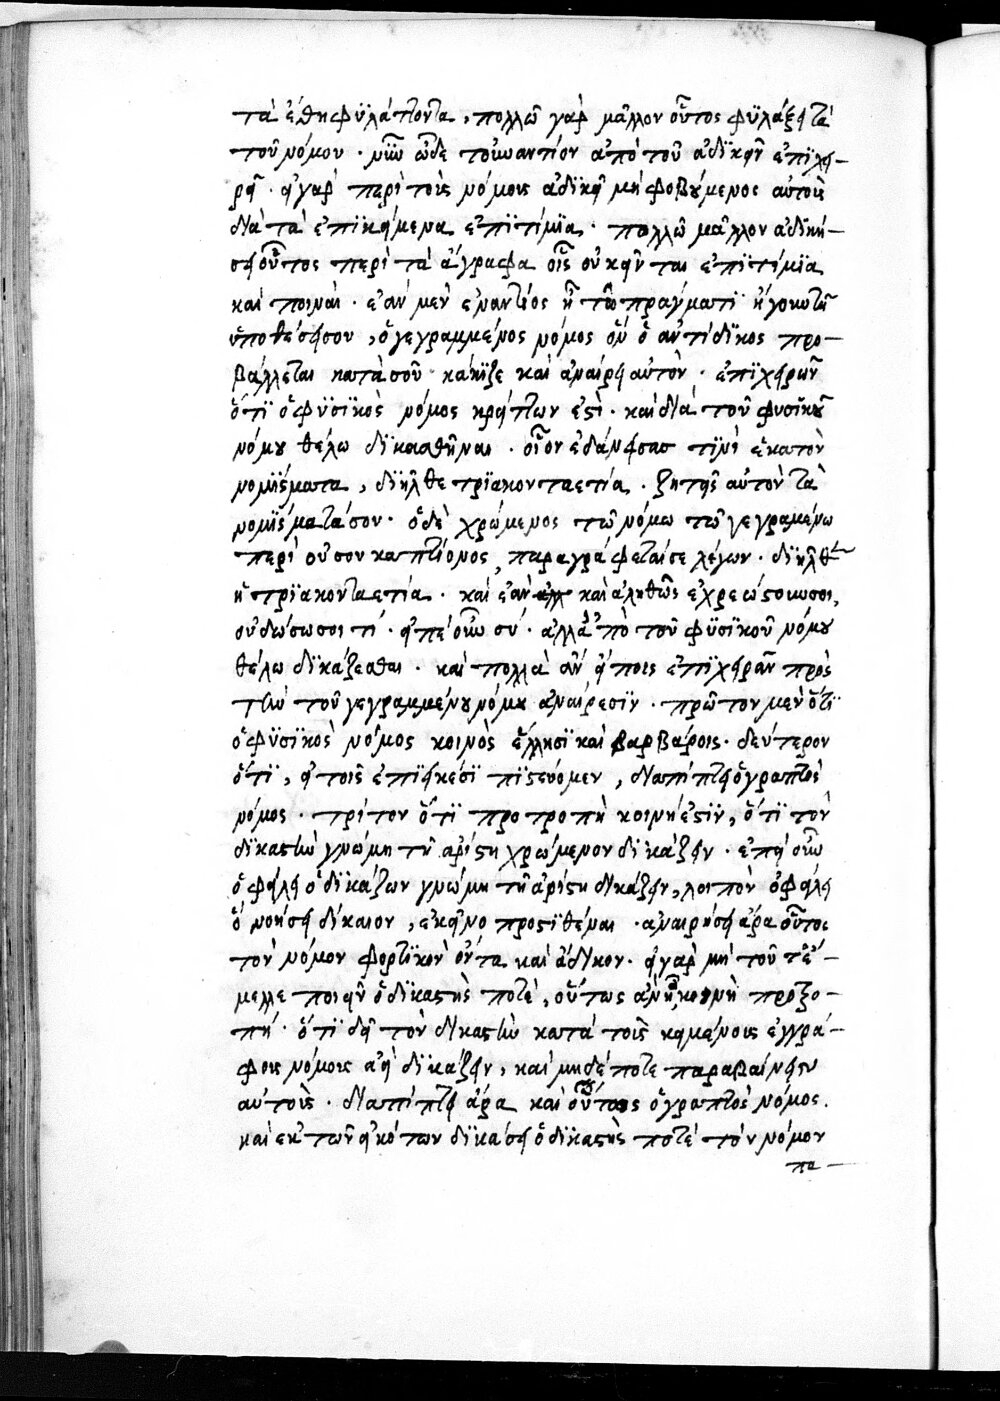 τὰ ἔθη φϋλάττοντα, πολλῶ γὰρ μᾶλλον οὗτος φϋλάξει τὰ
τοῦ νόμου · νῦν ὧδε τοὐναντίον ἀπὸ τοῦ ἀδϊκεῖν ἐπϊχει–
ρεῖ · εἰ γὰρ περὶ τοὺς νόμους ἀδϊκεῖ μὴ φοβούμενος αὐτοὺς
διὰ τὰ ἐπϊκείμενα ἐπϊτίμϊα · πολλῶ μᾶλλον ἀδϊκή–
σει οὗτος περὶ τὰ ἄγραφα οἷς οὐ κεῖνται ἐπϊτίμϊα
καὶ ποιναὶ · ἐὰν μὲν ἐναντίος ἦ τῶ πράγματϊ ἤγουν τῆ
ὑποθέσει σου, ὁ γεγραμμένος νόμος ὃν ὁ ἀντίδϊκος προ–
βάλλεται κατὰ σοῦ · κάκϊζε καὶ ἀναίρει αὐτὸν · ἐπϊχειρῶν
ὅτϊ ὁ φϋσϊκὸς νόμος κρείττων ἐστὶ · καὶ διὰ τοῦ φυσϊκοῦ
νόμου θέλω δϊκασθῆναι · οἷον ἐδάνεισας τϊνὶ ἑκατὸν
νομϊσματα, δϊῆλθε τρϊακονταετία · ζητεῖς αὐτὸν τὰ
νομϊσματά σου · ὁ δὲ χρώμενος τῶ νόμω τῶ γεγραμένω
περὶ οὐσουκαπτίονος, παραγράφεταί σε λέγων · δϊῆλθεν
ἡ τρϊακονταετία · καὶ ἐὰν καὶ ἀληθῶς ἐχρεώστουν σοι,
οὐ δώσω σοι τί · εἰπὲ οὖν σύ · ἀλλὰ ἀπὸ τοῦ φϋσϊκοῦ νόμου
θέλω δϊκάζεσθαι · καὶ πολλὰ ἂν εἴποις ἐπϊχειρῶν πρὸς
τὴν τοῦ γεγραμμένου νόμου ἀναίρεσϊν · πρῶτον μὲν ὅτϊ
ὁ φϋσϊκὸς νόμος κοινὸς ἕλλησϊ καὶ βαρβάροις · δεύτερον
ὅτϊ, εἰ τοῖς ἐπϊεικέσϊ πϊστεύομεν, διαπίπτει ὁ γραπτὸς
νόμος · τρίτον ὅτϊ προτροπὴ κοινή ἐστϊν, ὅτϊ τὸν
δϊκαστὴν γνώμη τῆ ἀρίστη χρώμενον δϊκάζειν · ἐπεὶ οὖν
ὀφείλει ὁ δϊκάζων γνώμη τῆ ἀρίστη δικάζειν, λοιπὸν ὀφείλει
ὃ νοήσει δίκαιον, ἐκεῖνο προστϊθέναι · ἀναιρήσει ἄρα οὗτος
τὸν νόμον φορτϊκὸν ὄντα καὶ ἄδικον · εἰ γὰρ μὴ τοῦτ' ἔ–
μελλε ποιεῖν ὁ δϊκαστὴς ποτὲ, οὕτως ἂν ἦ κοινὴ προτρο–
πή · ὅτϊ δεῖ τὸν δικαστὴν κατὰ τοὺς κειμένους ἐγγρά–
φους νόμους ἀεὶ δϊκάζειν, καὶ μηδέποτε παραβαίνειν
αὐτοὺς · διαπίπτει ἄρα καὶ οὕτως ὁ γραπτὸς νόμος.
καὶ ἐκ τῶν εἰκότων δϊκάσει ὁ δϊκαστὴς ποτὲ τὸν νόμον
πα–